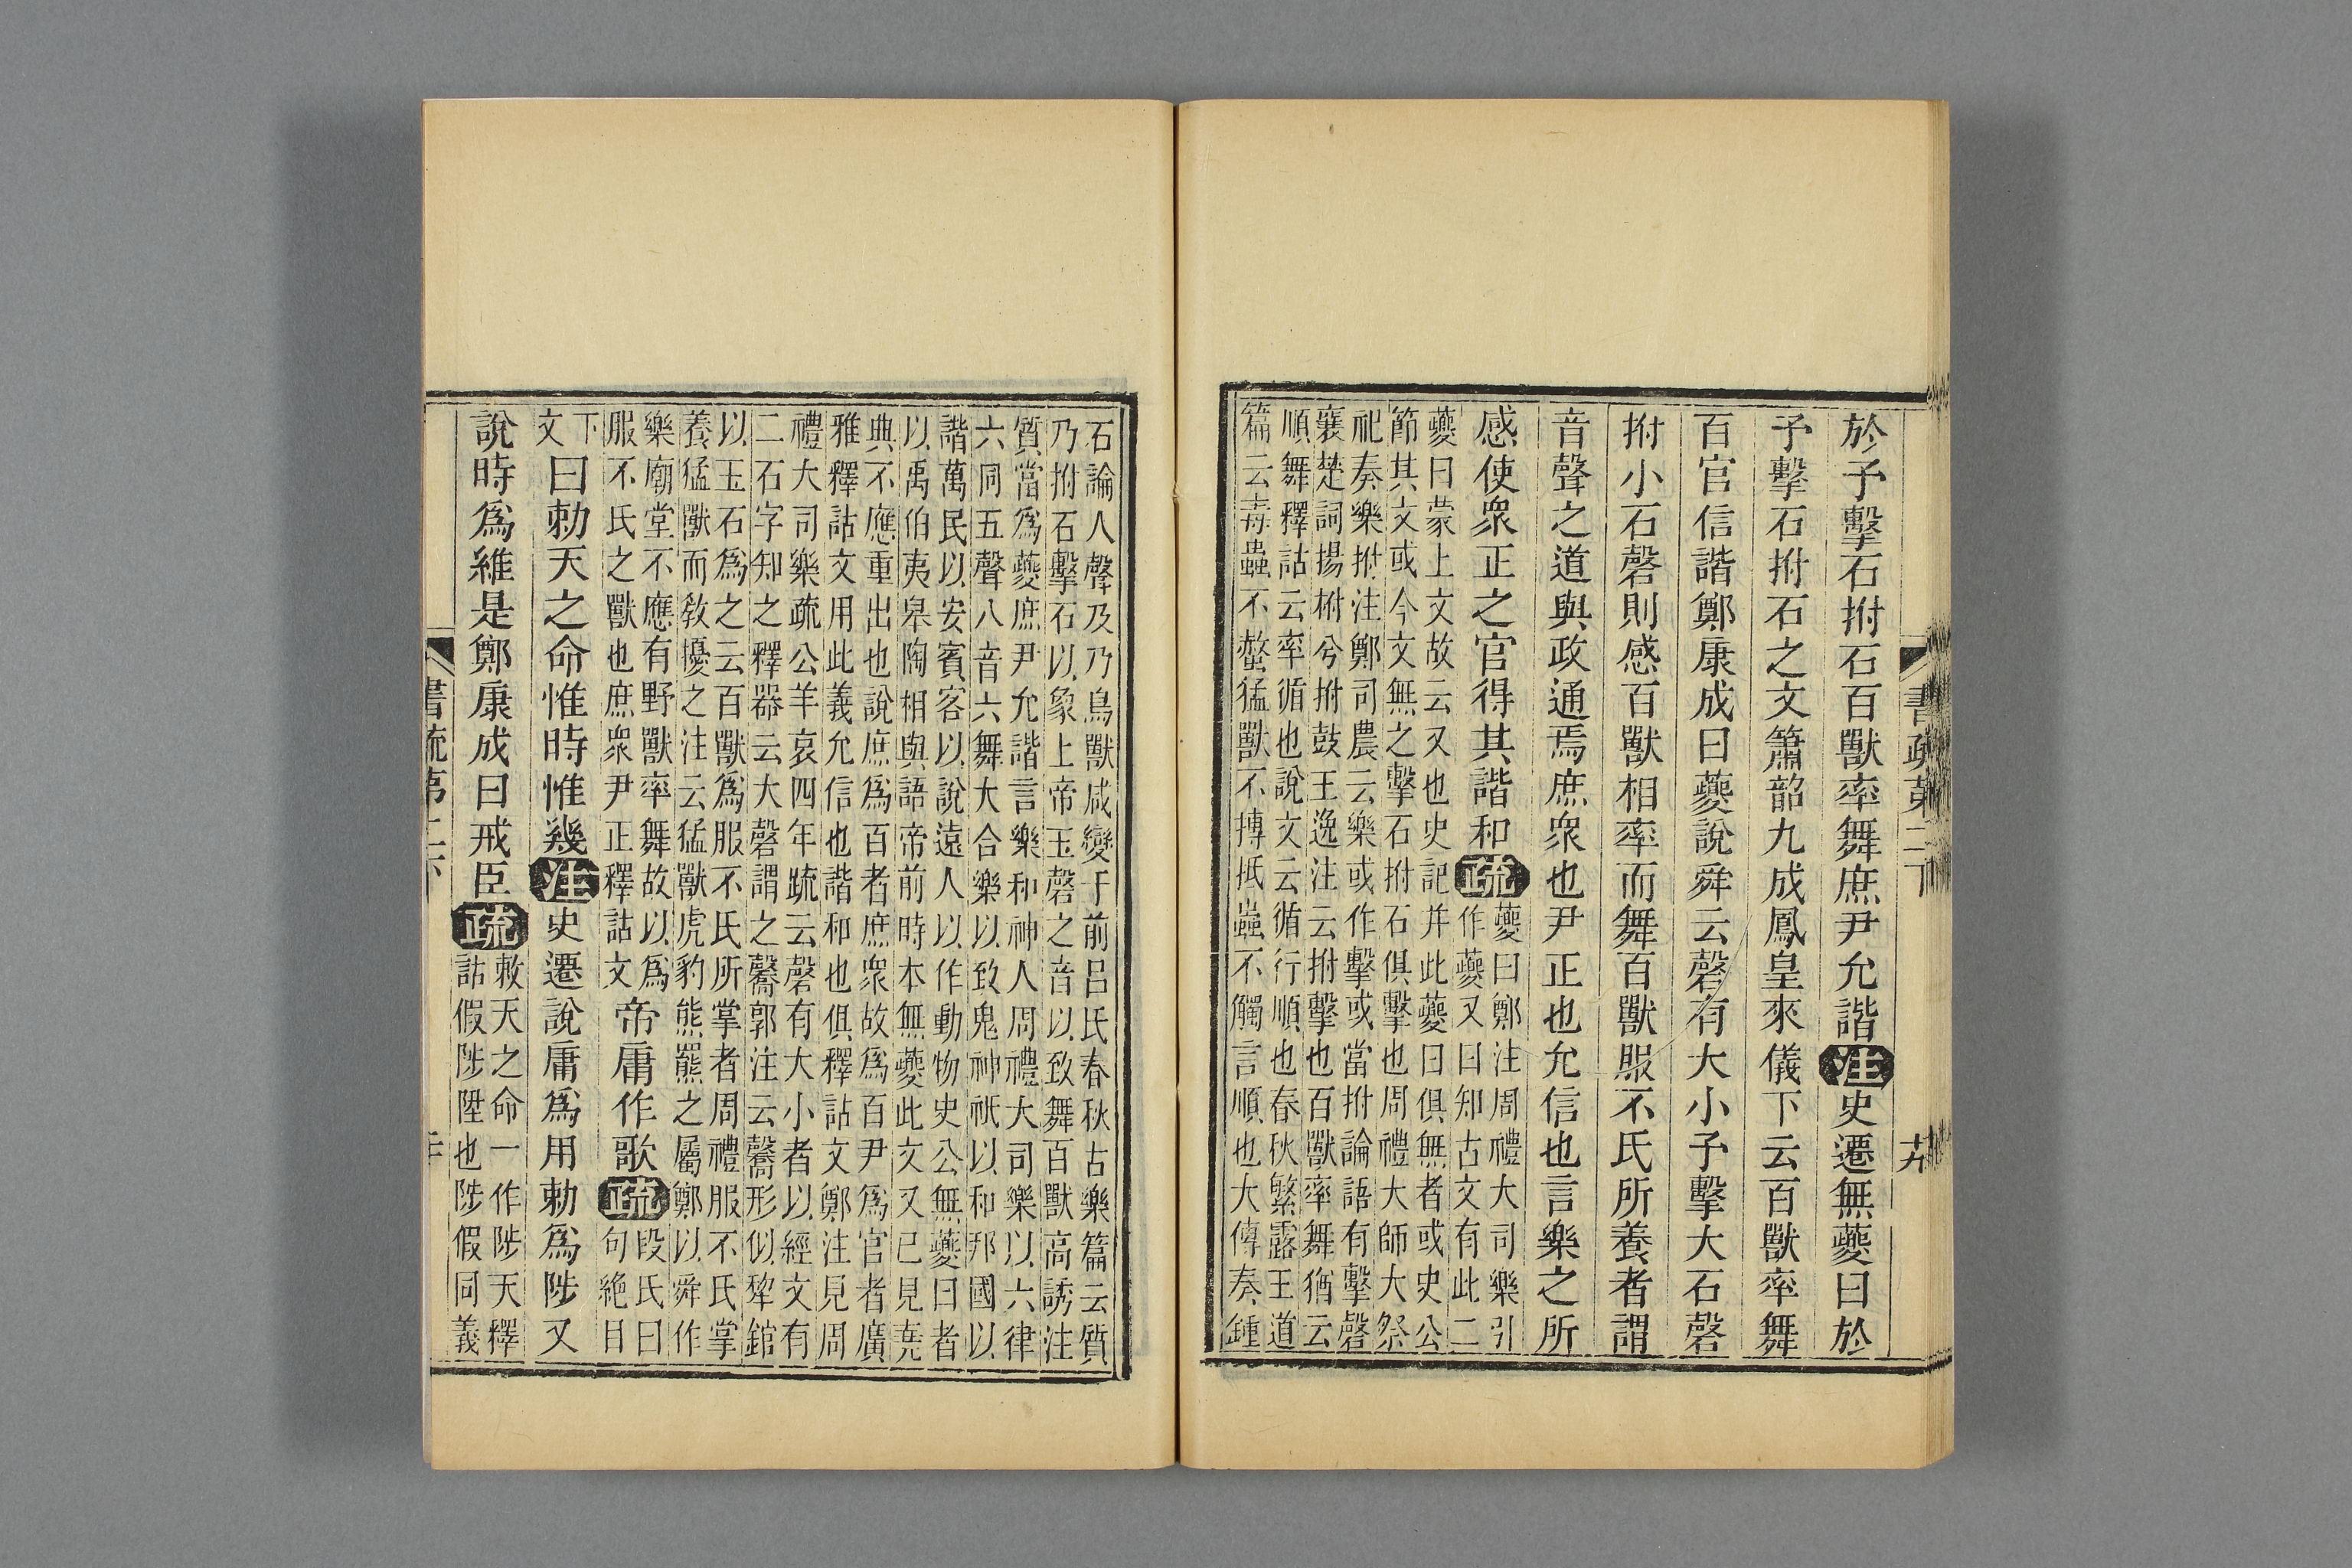 於予擊石拊石百獸率舞庶尹允諧注史遷無夔曰於
予擊石拊石之文簫韶九成鳳皇來儀下云百獸率舞
百官信諧鄭康成曰夔說舜云磬有大小予擊大石磬
拊小石磬則感百獸相率而舞百獸服不氏所養者謂
音聲之道與政通焉庶眾也尹正也允信也言樂之所
感使眾正之官得其諧和疏
夔曰鄭注周禮大司樂引
作夔又曰知古文有此二
夔曰蒙上文故云又也史記并此夔曰俱無者或史公
節其文或今文無之擊石拊石俱擊也周禮大師大祭
祀奏樂拊注鄭司農云樂或作擊或當拊論語有擊磬
襄楚詞揚枹兮拊鼓王逸注云拊擊也百獸率舞猶云
順舞釋詁云率循也說文云循行順也春秋繁露王道
篇云毒蟲不螫猛獸不摶抵蟲不觸言順也大傳奏鍾
石論人聲乃及乃鳥獸咸變于前呂氏春秋古樂篇云質
乃拊石擊石以象上帝玉磬之音以致舞百獸高誘注
質當爲夔庶尹允諧言樂和神人周禮大司樂以六律
六同五聲八音六舞大合樂以致鬼神祇以和邦國以
諧萬民以安賓客以說遠人以作動物史公無夔曰者
以禹伯夷皋陶相與語帝前時本無夔此文又已見堯
典不應重出也說庶爲百者庶眾故爲百尹爲官者廣
雅釋詁文用此義允信也諧和也俱釋詁文鄭注見周
禮大司樂疏公羊哀四年疏云磬有大小者以經文有
二石字知之釋器云大磬謂之毊郭注云毊形似犂錧
以玉石爲之云百獸爲服不氏所掌者周禮服不氏掌
養猛獸而敎擾之注云猛獸虎豹熊羆之屬鄭以舜作
樂廟堂不應有野獸率舞故以爲
服不氏之獸也庶眾尹正釋詁文
帝庸作歌疏
段氏曰
句絕目
下
文
曰勑天之命惟時惟幾注史遷說庸爲用勑爲陟又
說時爲維是鄭康成曰戒臣疏
敕天之命一作陟天釋
詁假陟陞也陟假同義
書疏第二下